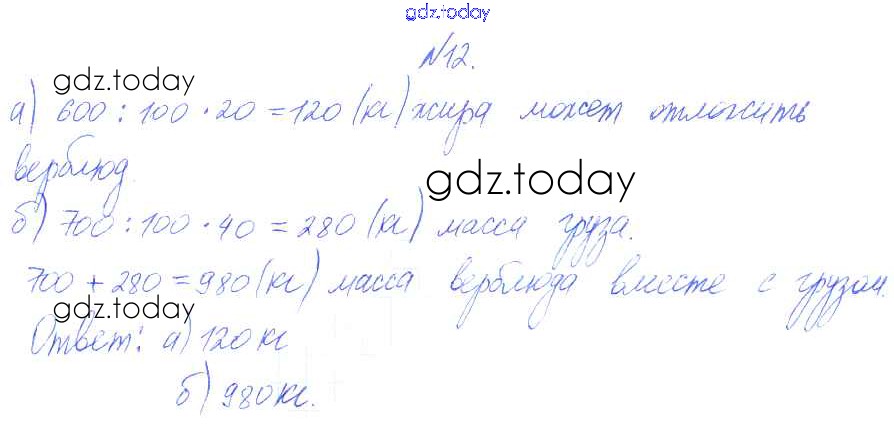 gdz.today
№12.
gdz.today
а) 600 : 100 · 20 = 120 (кг) жира может отложить
верблюд.
gdz.today
б) 700 : 100 · 40 = 280 (кг) масса груза.
700 + 280 = 980 (кг) масса верблюда вместе с грузом.
gdz.today
Ответ: а) 120 кг
б) 980 кг.